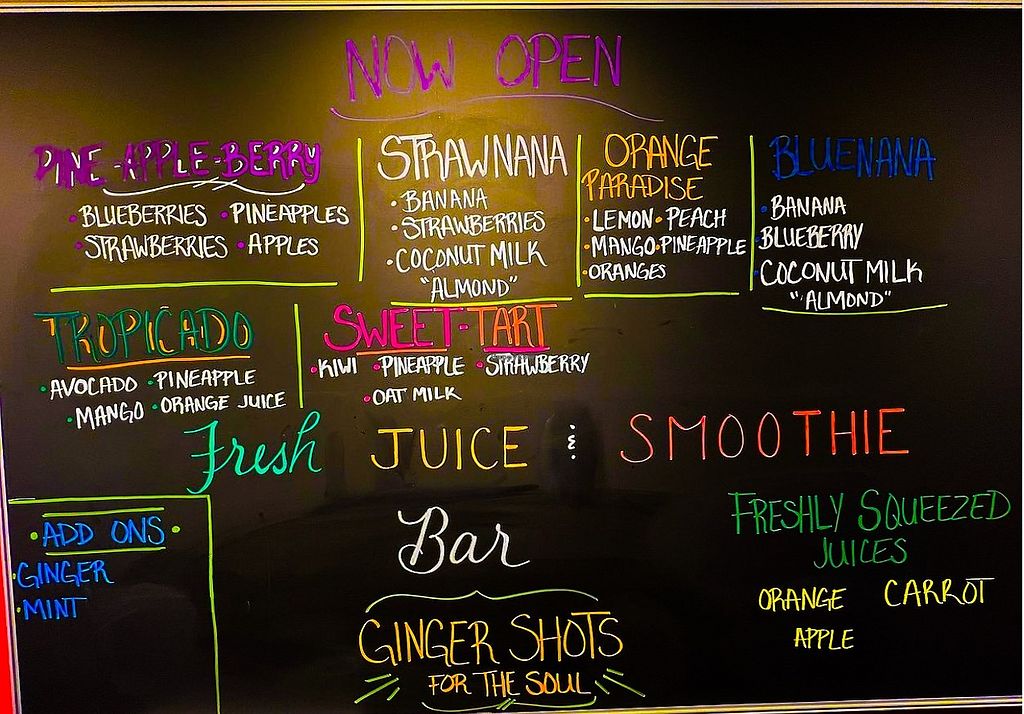 NOW OPEN
PINE-APPLE-BERRY
• BLUEBERRIES • PINEAPPLES
• STRAWBERRIES • APPLES
STRAWNANA
• BANANA
• STRAWBERRIES
• COCONUT MILK
"ALMOND"
ORANGE
PARADISE
• LEMON • PEACH
• MANGO • PINEAPPLE
• ORANGES
BLUENANA
• BANANA
• BLUEBERRY
• COCONUT MILK
"ALMOND"
TROPICADO
• AVOCADO • PINEAPPLE
• MANGO • ORANGE JUICE
SWEET-TART
• KIWI • PINEAPPLE • STRAWBERRY
• OAT MILK
Fresh JUICE & SMOOTHIE
Bar
• ADD ONS •
• GINGER
• MINT
GINGER SHOTS
FOR THE SOUL
FRESHLY SQUEEZED
JUICES
ORANGE CARROT
APPLE